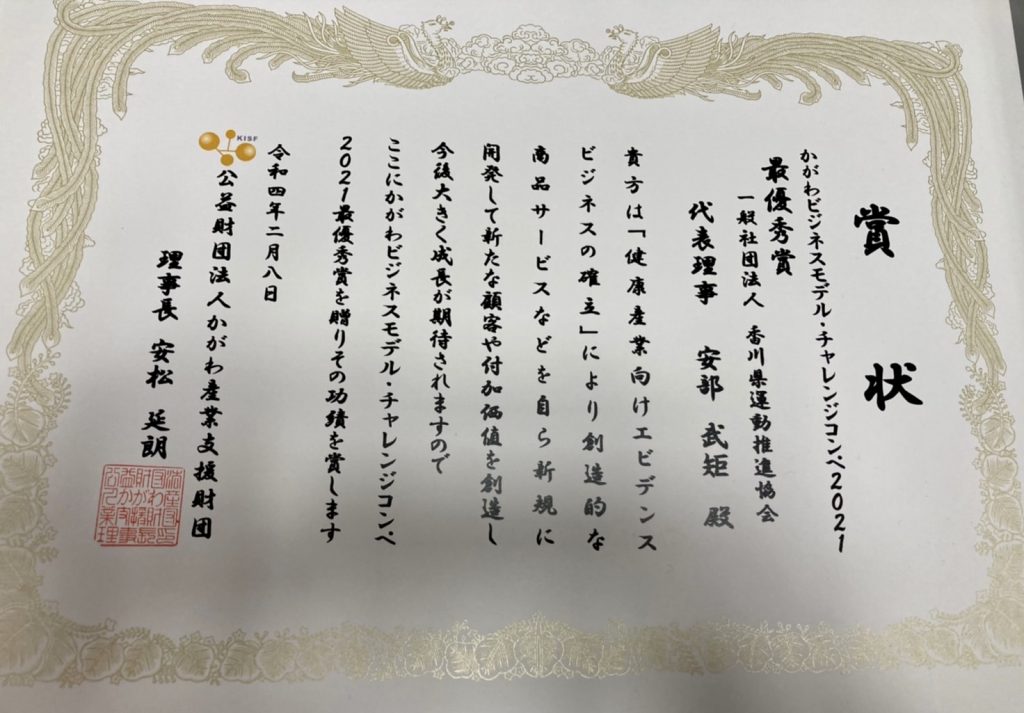 賞状
かがわビジネスモデル・チャレンジコンペ2021
最優秀賞
一般社団法人 香川県運動推進協会
代表理事 安部 武矩 殿
貴方は「健康産業向けエビデンス
ビジネスの確立」により創造的な
商品サービスなどを自ら新規に
開発して新たな顧客や付加価値を創造し
今後大きく成長が期待されますので
ここにかがわビジネスモデル・チャレンジコンペ
2021最優秀賞を贈りその功績を賞します
令和四年二月八日
KISF
公益財団法人かがわ産業支援財団
理事長 安松 延朗